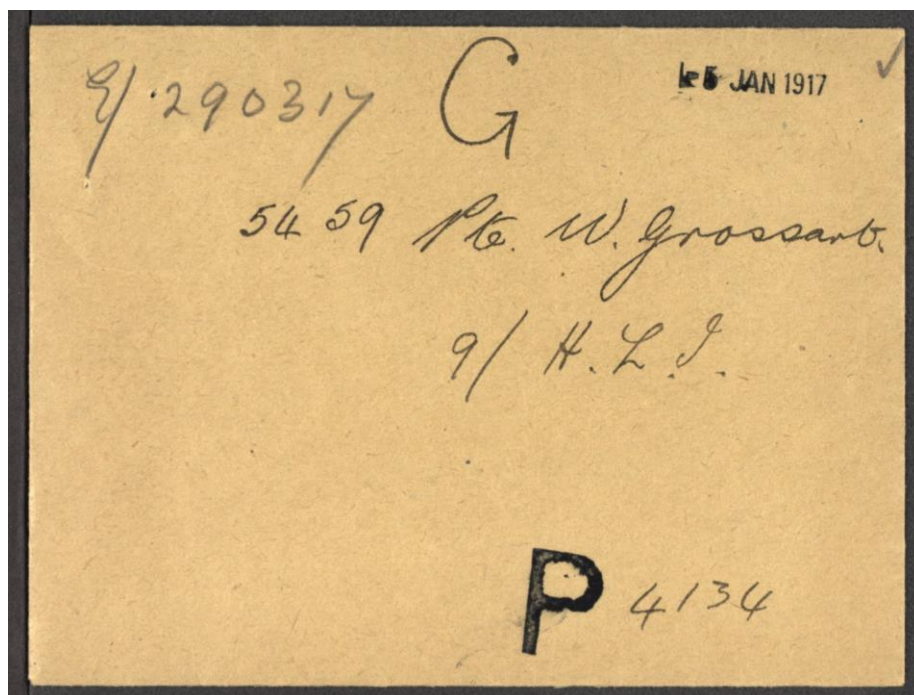 E/290317 G -5 JAN 1917
5459 Pte. W. Grossart.
9/ H.L.I.
P 4134